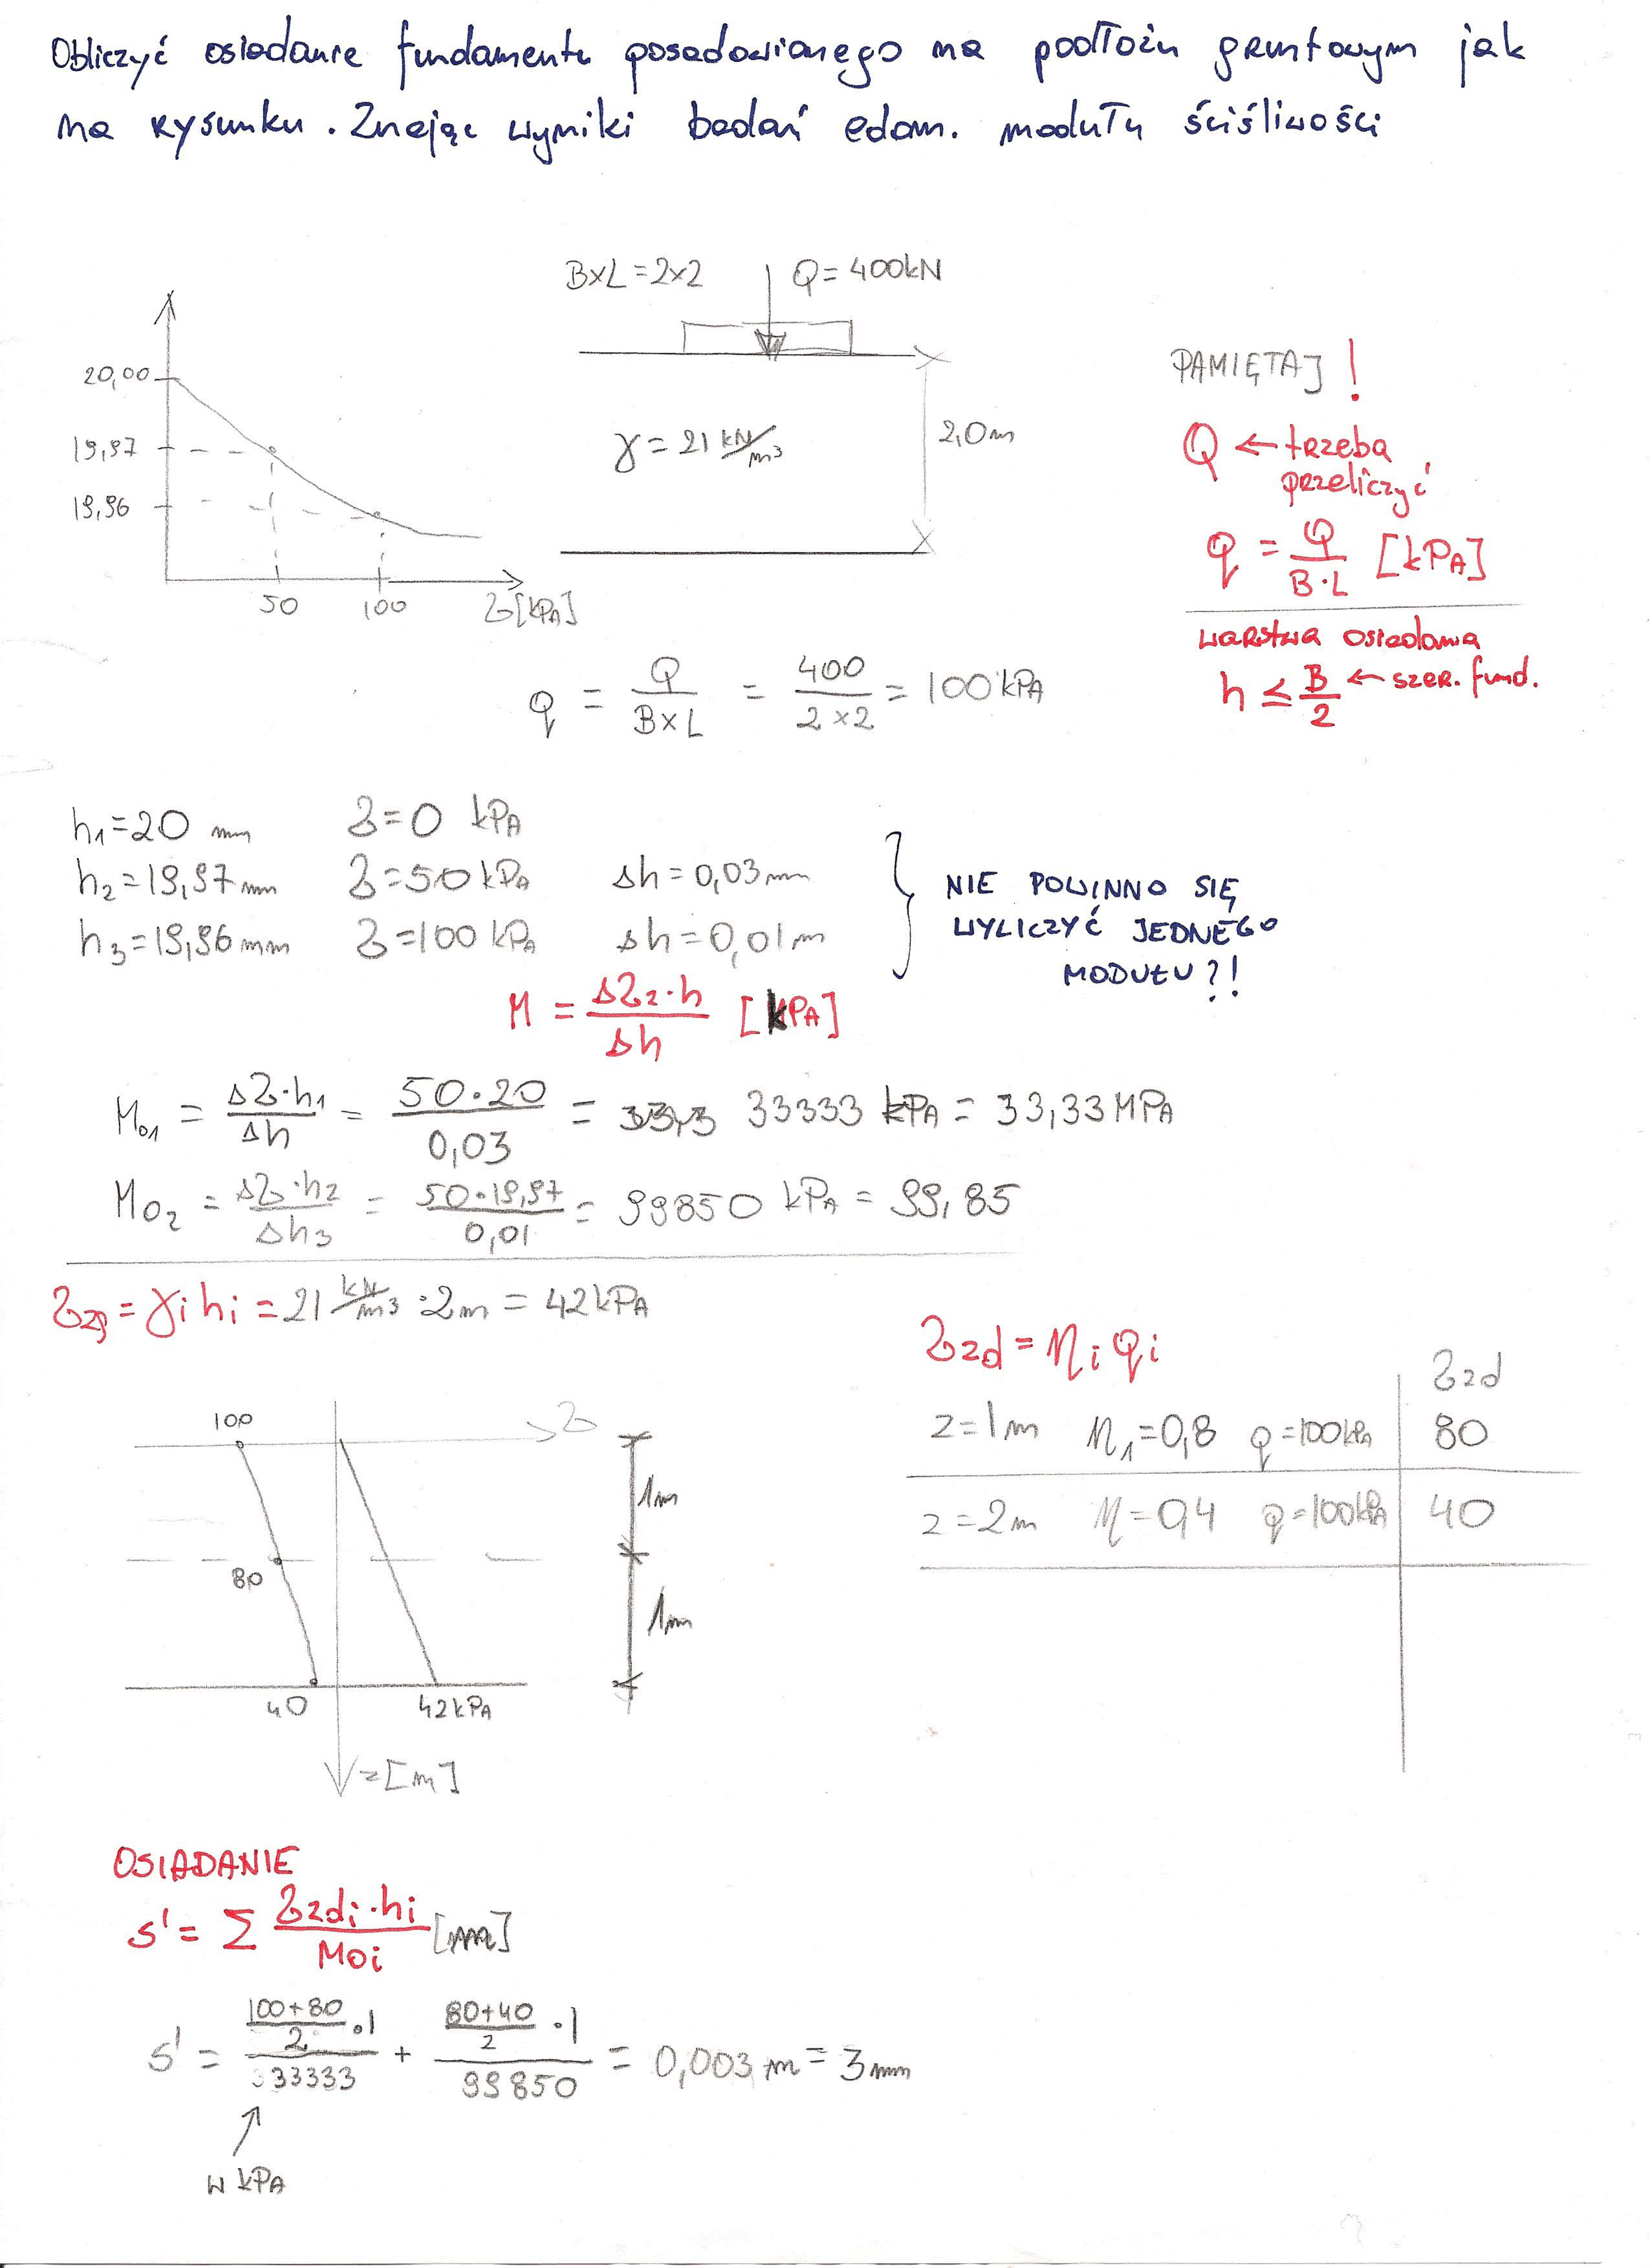 Obliczyć osiadanie fundamentu posadowionego na podłożu gruntowym jak
na rysunku. Znając wyniki badań edom. modułu ściśliwości
BxL=2x2 Q=400kN
20,00
19,97
19,96
50 100 σ[kPa]
γ=21 kN/m3
2,0m
PAMIĘTAJ!
Q ← trzeba
przeliczyć
q = Q/B·L [kPa]
warstwa osiadania
h ≤ B/2 ← szer. fund.
q = Q/BxL = 400/2x2 = 100 kPa
h1=20 mm σ=0 kPa
h2=19,97mm σ=50kPa Δh=0,03mm
h3=19,96mm σ=100kPa Δh=0,01m
NIE POWINNO SIĘ
WYLICZYĆ JEDNEGO
MODUŁU?!
M = Δσz·h/Δh [kPa]
M01 = Δσ·h1/Δh = 50·20/0,03 = 33,3 33333 kPa = 33,33MPa
M02 = Δσ·h2/Δh3 = 50·19,97/0,01 = 99850 kPa = 99,85
σzg = γi hi = 21 kN/m3 ·2m = 42kPa
σzd = ηi qi
σzd
z=1m η1=0,8 q=100kPa 80
z=2m η=0,4 q=100kPa 40
100 σ
1m
80
1m
40 42kPa
z[m]
OSIADANIE
s' = Σ σzdi·hi/Moi [mm]
s' = (100+80)/2·1/33333 + (80+40)/2·1/99850 = 0,003m = 3mm
↑
w kPa